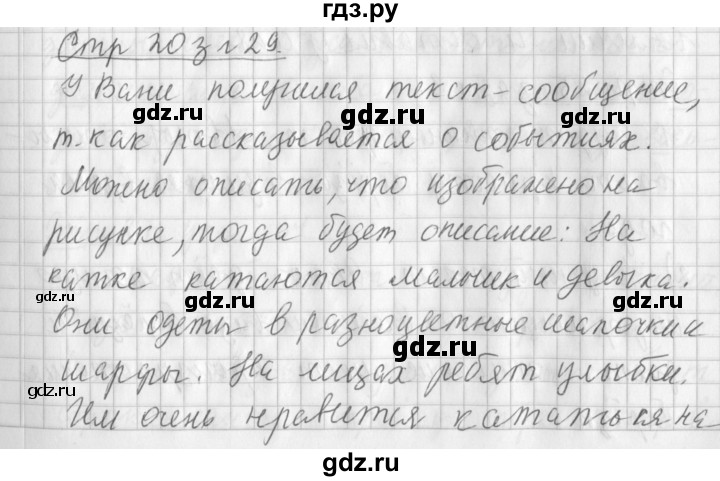 гдз.ру
Стр 20 з г 29.
У Вани получился текст-сообщение,
т.как рассказывается о событиях.
Можно описать, что изображено на
рисунке, тогда будет описание: На
катке катаются мальчик и девочка.
Они одеты в разноцветные шапочки и
шарфы. На лицах ребят улыбки.
Им очень нравится кататься на
gdz.ru
gdz.ru
gdz.ru
gdz.ru
gdz.ru
gdz.ru
gdz.ru
gdz.ru
gdz.ru
gdz.ru
gdz.ru
gdz.ru
gdz.ru